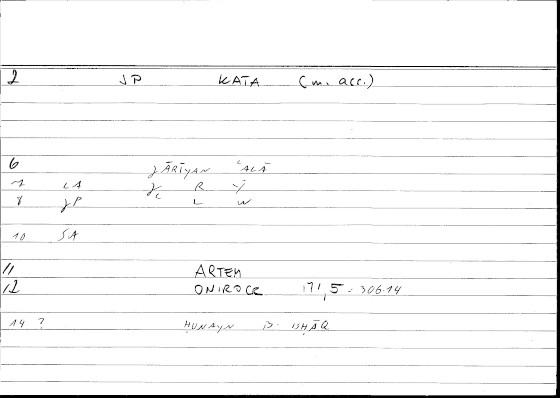 2 JP KATA (m. acc.)
6 ǧĀRIYAN ʿALĀ
7 LA ǧ R Y
8 JP L W
10 SA
11 ARTEM
12 ONIROCR 171,5 = 306.14
14 ? ḤUNAYN B. ISḤĀQ